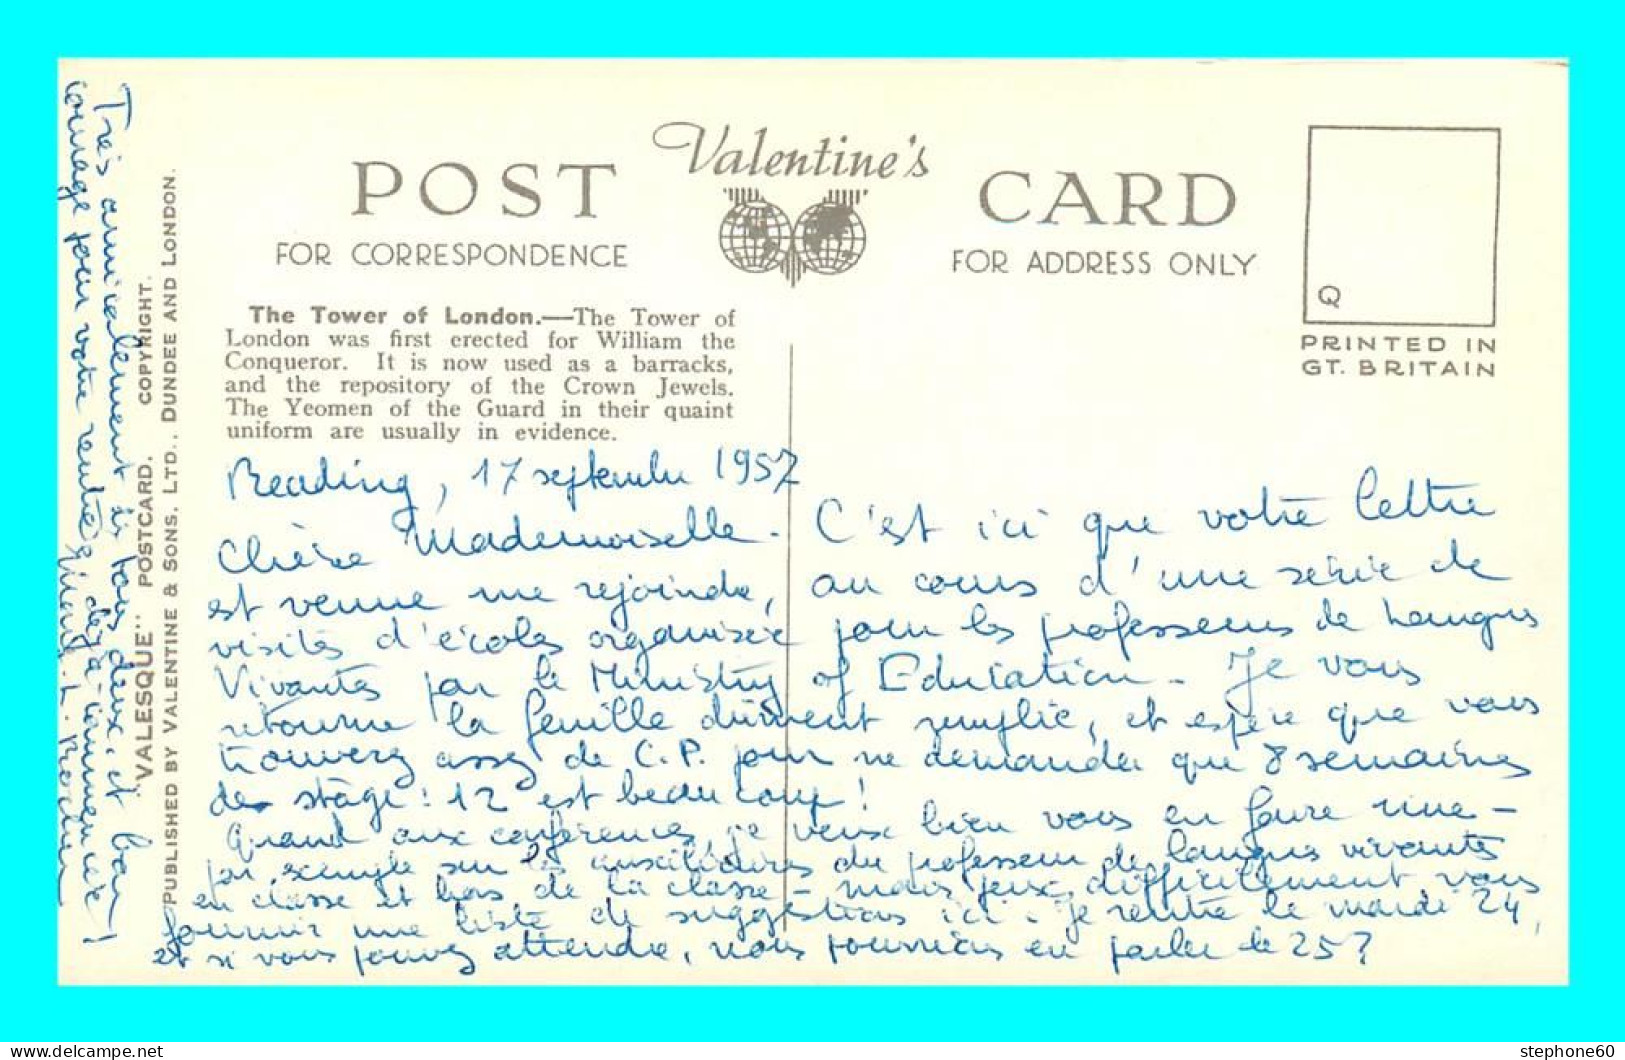 Valentine's
POST CARD
FOR CORRESPONDENCE
FOR ADDRESS ONLY
Q
PRINTED IN
GT. BRITAIN
The Tower of London.—The Tower of
London was first erected for William the
Conqueror. It is now used as a barracks,
and the repository of the Crown Jewels.
The Yeomen of the Guard in their quaint
uniform are usually in evidence.
"VALESQUE" POSTCARD. COPYRIGHT.
PUBLISHED BY VALENTINE & SONS, LTD., DUNDEE AND LONDON.
Reading, 17 septembre 1957
Chère Mademoiselle. C'est ici que votre lettre
est venue me rejoindre, au cours d'une série de
visites d'écoles organisée pour les professeurs de Langues
Vivantes par le Ministry of Education. Je vous
retourne la feuille dûment remplie, et espère que vous
trouverez assez de C.P. pour ne demander que 8 semaines
de stage : 12 est beaucoup !
Quand aux conférences, je veux bien vous en faire une -
par exemple sur les auxiliaires du professeur de langues vivantes
en classe et hors de la classe - mais peux difficilement vous
fournir une liste de suggestions ici. Je rentre le mardi 24,
et si vous pouvez attendre, nous pourrions en parler le 25 ?
Très amicalement à tous deux, et bon
courage pour votre rentrée déjà commencée !